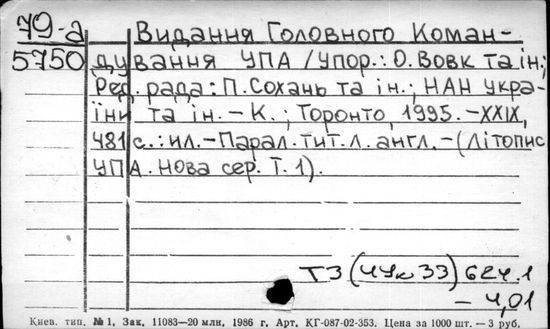 79-а Видання Головного Коман-
5750 дування УПА /упор.: О. Вовк та ін;
Ред. рада: П. Сохань та ін.; НАН Укра-
їни та ін. – К.; Торонто, 1995. – XXIX,
481 с.: ил. – Парал. тит. л. англ. – (Літопис
УПА. Нова сер. Т. 1).
Т3(4Ук33)624.1
– 4,01
Киев. тип. № 1, Зак. 11083—20 млн. 1986 г. Арт. КГ-087-02-353. Цена за 1000 шт. — 3 руб.